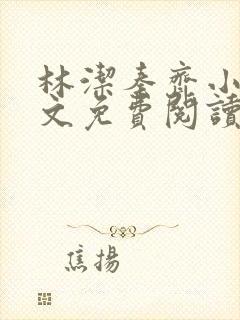 林潔秦齊小
文免費閱讀
焦揚